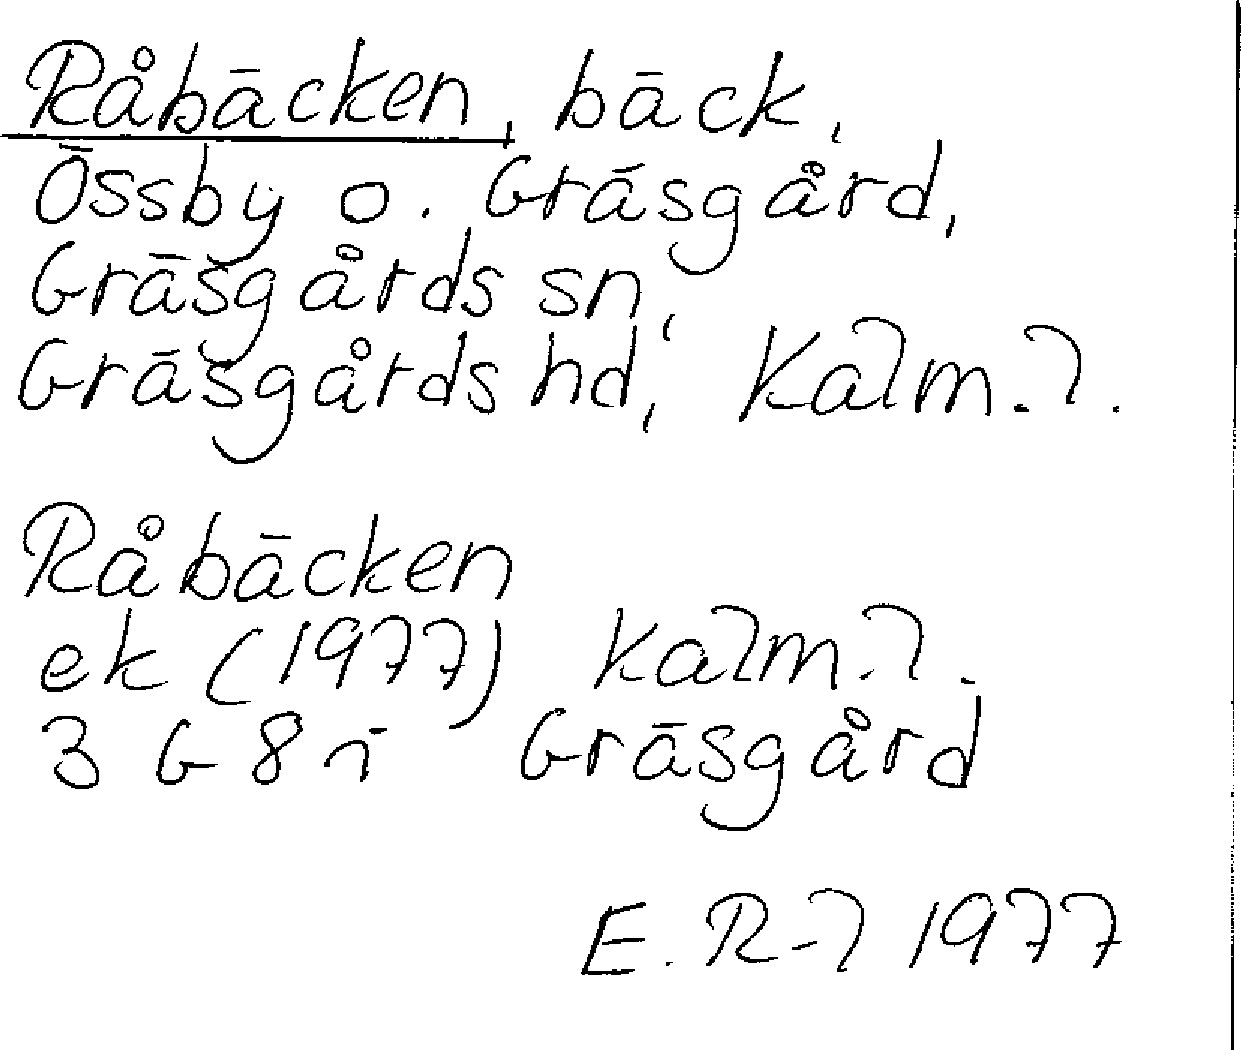 Råbäcken, bäck,
Össby o. Gräsgård,
Gräsgårds sn,
Gräsgårds hd, Kalm.l.
Råbäcken
ek (1977) Kalm.l.
3 G 8 i Gräsgård
E. R-l 1977